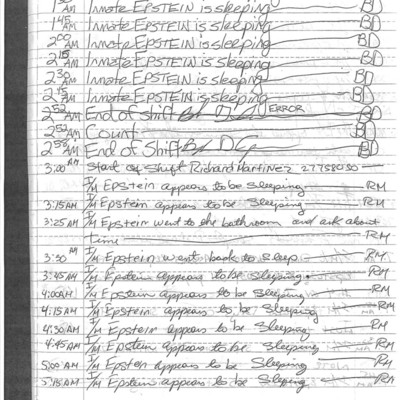 1:30 AM Inmate EPSTEIN is sleeping BD
1:45 AM Inmate EPSTEIN is sleeping BD
2:00 AM Inmate EPSTEIN is sleeping BD
2:15 AM Inmate EPSTEIN is sleeping BD
2:30 AM Inmate EPSTEIN is sleeping BD
2:45 AM Inmate EPSTEIN is sleeping BD
2:52 AM End of shift ERROR BD
2:52 AM Count BD
2:55 AM End of Shift BD
3:00 AM Start of Shift Richard Martinez 27758050
I/M Epstein appears to be sleeping RM
3:15AM I/M Epstein appears to be sleeping RM
3:25AM I/M Epstein went to the bathroom and ask about
time RM
3:30 AM I/M Epstein went back to sleep RM
3:45AM I/M Epstein appears to be sleeping. RM
4:00AM I/M Epstein appears to be sleeping RM
4:15AM I/M Epstein appears to be sleeping RM
4:30AM I/M Epstein appears to be sleeping RM
4:45AM I/M Epstein appears to be sleeping RM
5:00AM I/M Epstein appears to be sleeping RM
5:15AM I/M Epstein appears to be Sleeping RM